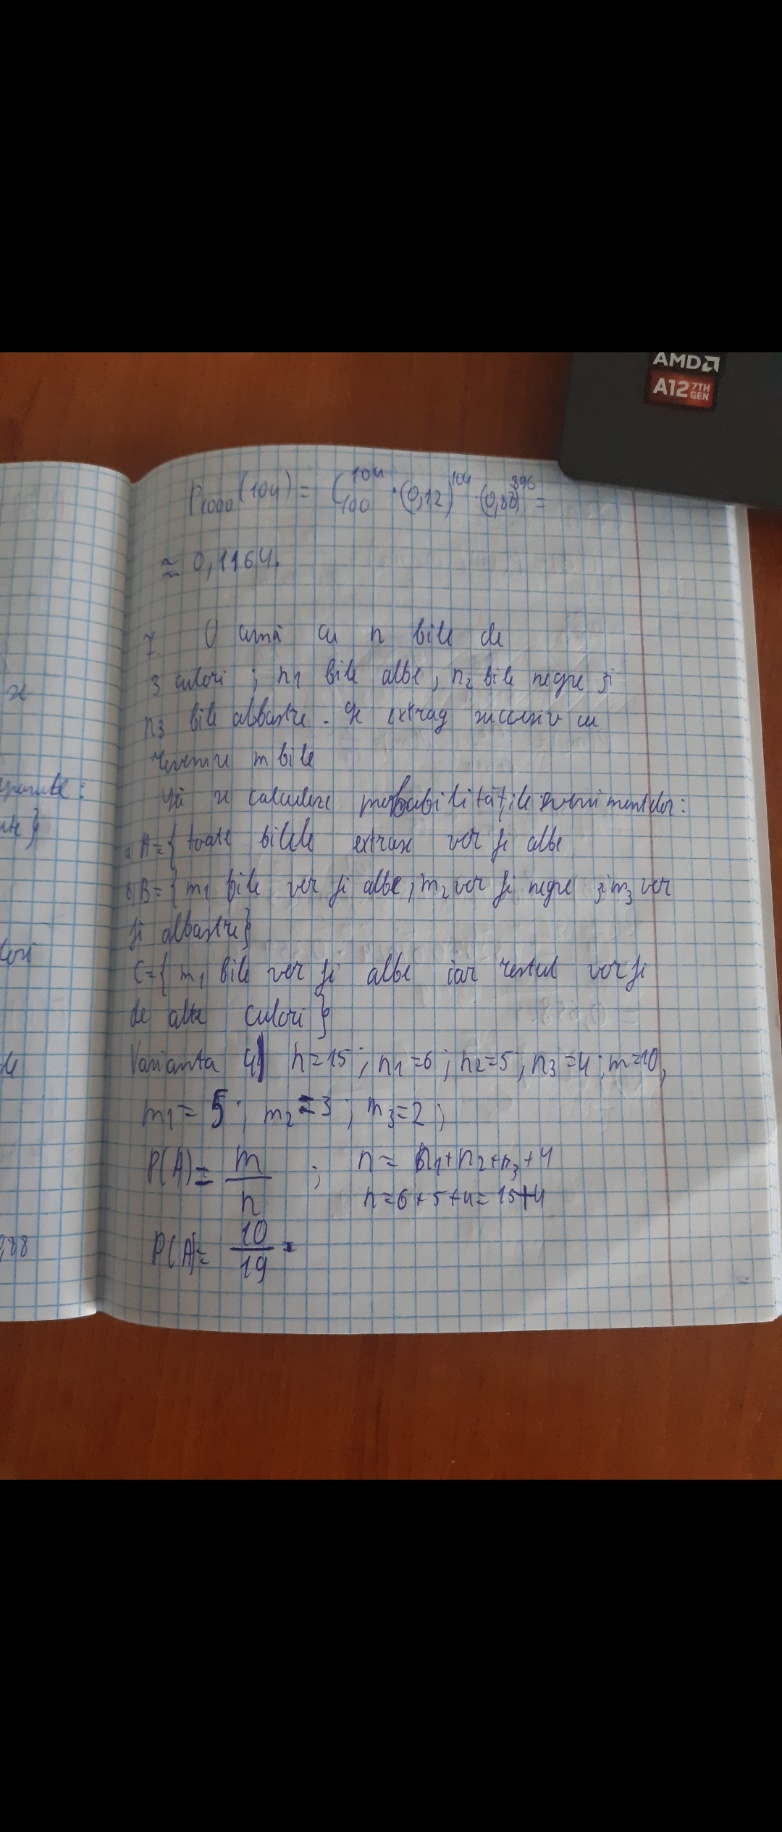 AMD
A12 7TH GEN
P1000(104) = C100^104 · (0,12)^104 (0,88)^896 =
≈ 0,1164.
7 O urnă cu n bile de
3 culori ; n1 bile albe, n2 bile negre și
n3 bile albastre. Se extrag succesiv cu
revenire m bile
Să se calculeze probabilitățile evenimentelor:
a) A={ toate bilele extrase vor fi albe
b) B={ m1 bile vor fi albe, m2 vor fi negre și m3 vor
fi albastre}
C={ m1 bile vor fi albe iar restul vor fi
de alte culori}
Varianta 4) n=15; n1=6; n2=5; n3=4; m=10,
m1=5; m2=3; m3=2;
P(A)= m/n ; n= n1+n2+n3+4
n=6+5+4=15+4
P(A)= 10/19 =
,988